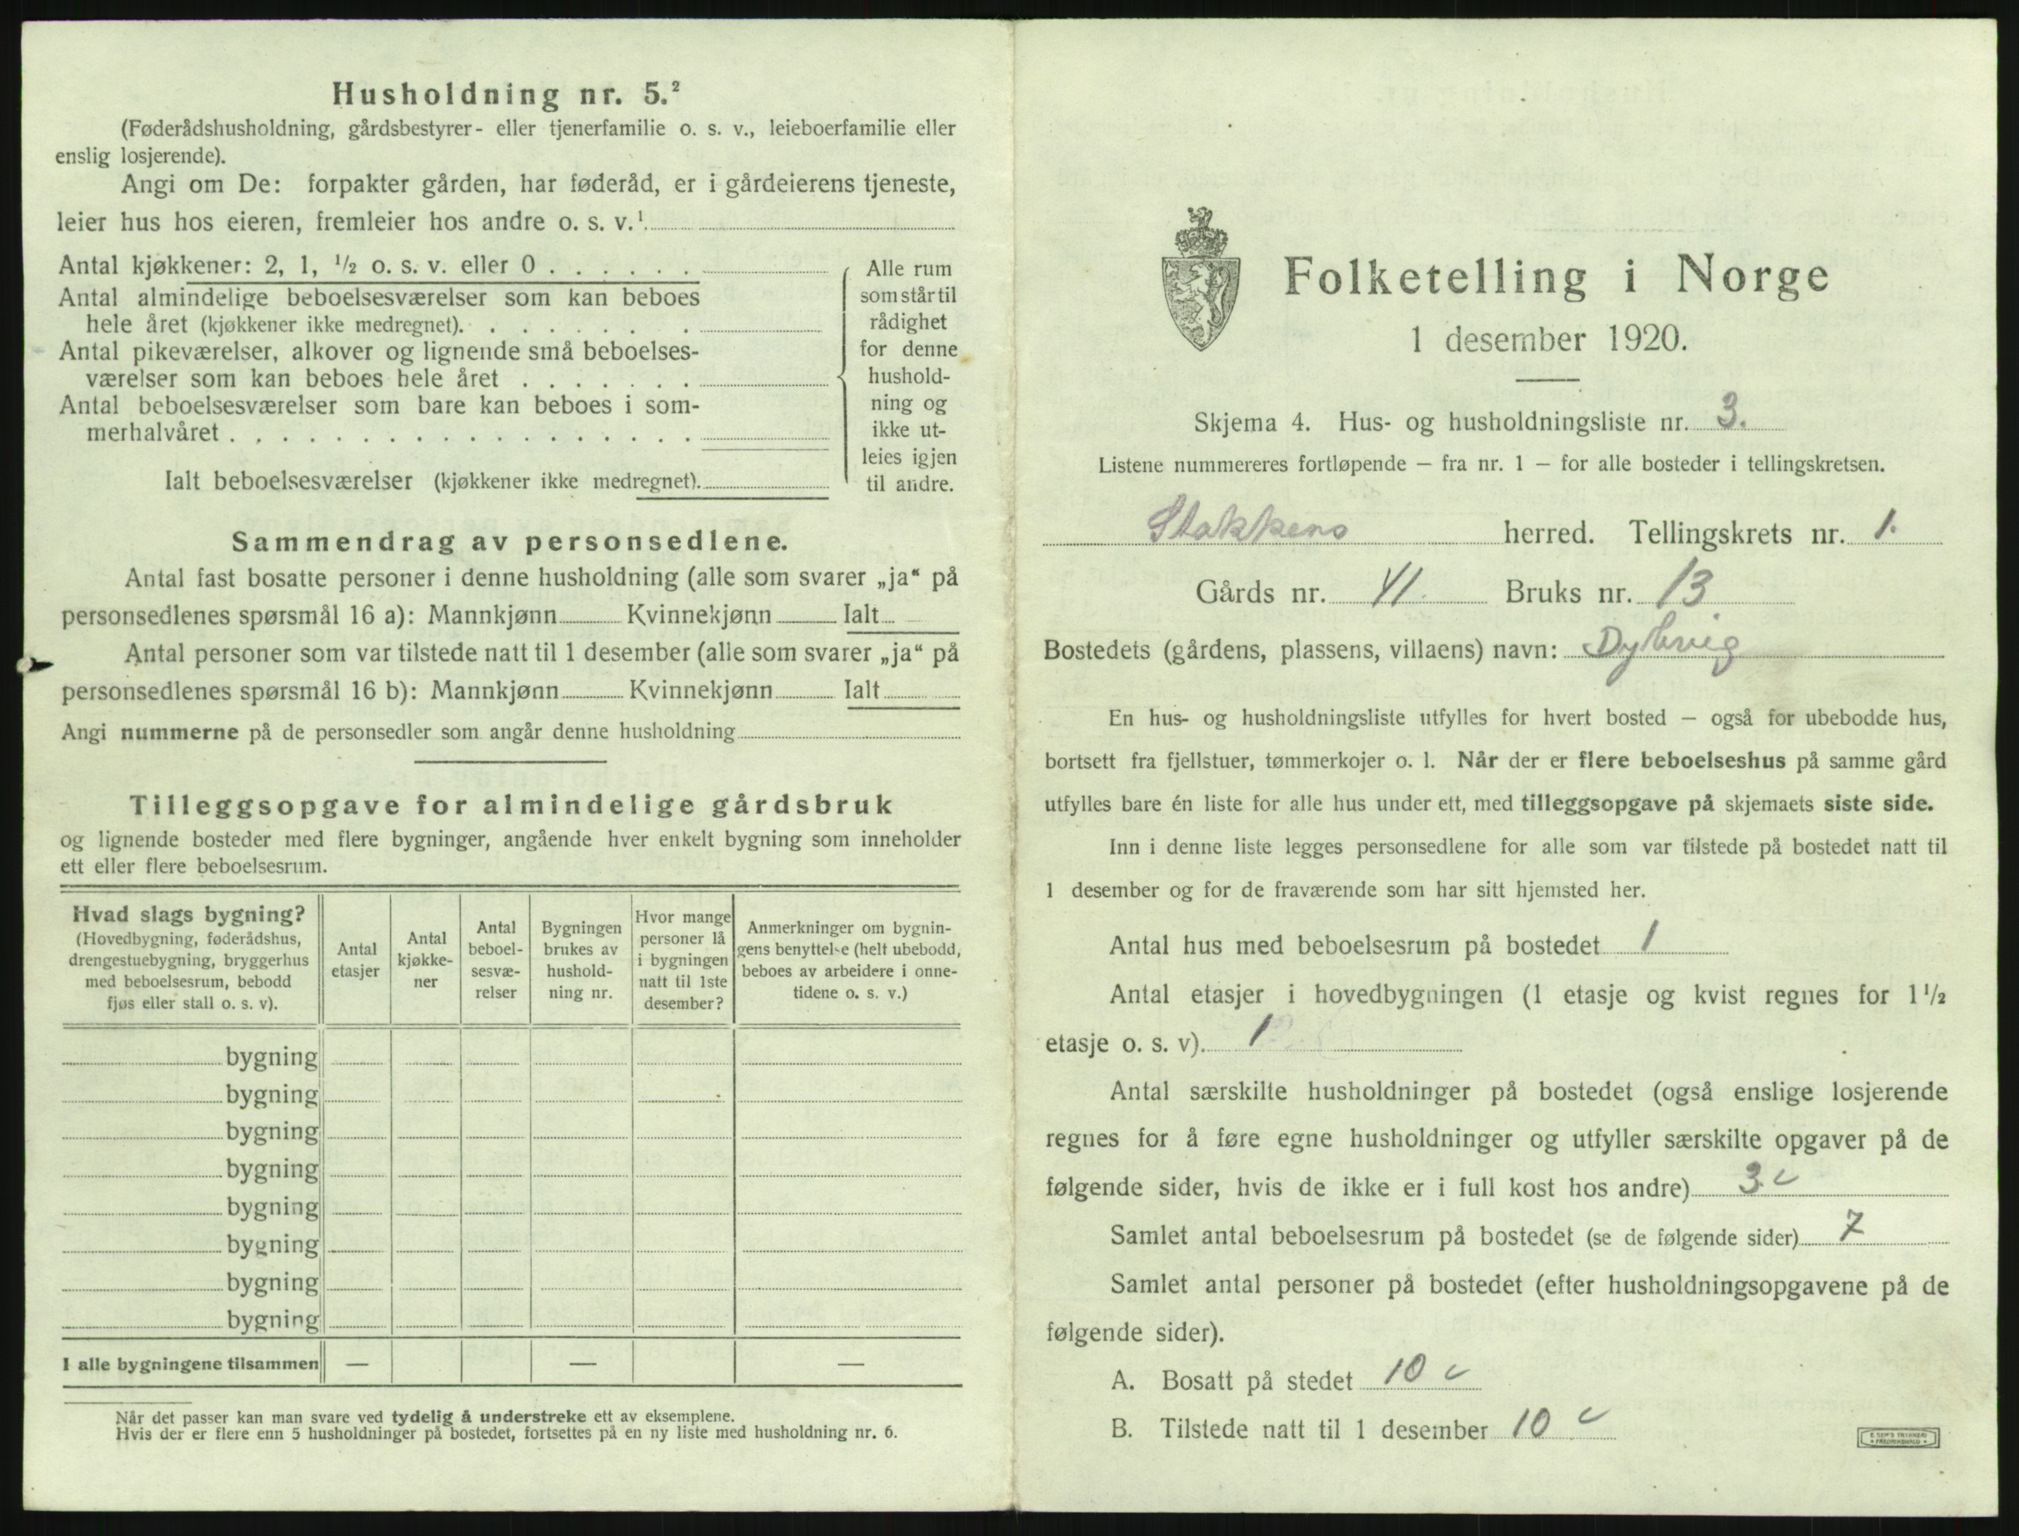 Husholdning nr. 5.²
(Føderådshusholdning, gårdsbestyrer- eller tjenerfamilie o. s. v., leieboerfamilie eller
enslig losjerende).
Angi om De: forpakter gården, har føderåd, er i gårdeierens tjeneste,
leier hus hos eieren, fremleier hos andre o. s. v.¹
Antal kjøkkener: 2, 1, ½ o. s. v. eller 0
Antal almindelige beboelsesværelser som kan beboes
hele året (kjøkkener ikke medregnet).
Antal pikeværelser, alkover og lignende små beboelses-
værelser som kan beboes hele året
Antal beboelsesværelser som bare kan beboes i som-
merhalvåret
Ialt beboelsesværelser (kjøkkener ikke medregnet).
Alle rum
som står til
rådighet
for denne
hushold-
ning og
ikke ut-
leies igjen
til andre.
Sammendrag av personsedlene.
Antal fast bosatte personer i denne husholdning (alle som svarer „ja“ på
personsedlenes spørsmål 16 a): Mannkjønn Kvinnekjønn Ialt
Antal personer som var tilstede natt til 1 desember (alle som svarer „ja“ på
personsedlenes spørsmål 16 b): Mannkjønn Kvinnekjønn Ialt
Angi nummerne på de personsedler som angår denne husholdning
Tilleggsopgave for almindelige gårdsbruk
og lignende bosteder med flere bygninger, angående hver enkelt bygning som inneholder
ett eller flere beboelsesrum.
Hvad slags bygning?
(Hovedbygning, føderådshus,
drengestuebygning, bryggerhus
med beboelsesrum, bebodd
fjøs eller stall o. s. v).
Antal
etasjer
Antal
kjøkke-
ner
Antal
beboel-
sesvæ-
relser
Bygningen
brukes av
hushold-
ning nr.
Hvor mange
personer lå
i bygningen
natt til 1ste
desember?
Anmerkninger om bygnin-
gens benyttelse (helt ubebodd,
beboes av arbeidere i onne-
tidene o. s. v.)
bygning
bygning
bygning
bygning
bygning
bygning
bygning
bygning
I alle bygningene tilsammen — — —
Når det passer kan man svare ved tydelig å understreke ett av eksemplene.
Hvis der er flere enn 5 husholdninger på bostedet, fortsettes på en ny liste med husholdning nr. 6.
Folketelling i Norge
1 desember 1920.
Skjema 4. Hus- og husholdningsliste nr. 3.
Listene nummereres fortløpende – fra nr. 1 – for alle bosteder i tellingskretsen.
Stokkens herred. Tellingskrets nr. 1.
Gårds nr. 41. Bruks nr. 13
Bostedets (gårdens, plassens, villaens) navn: Dybvig
En hus- og husholdningsliste utfylles for hvert bosted – også for ubebodde hus,
bortsett fra fjellstuer, tømmerkojer o. l. Når der er flere beboelseshus på samme gård
utfylles bare én liste for alle hus under ett, med tilleggsopgave på skjemaets siste side.
Inn i denne liste legges personsedlene for alle som var tilstede på bostedet natt til
1 desember og for de fraværende som har sitt hjemsted her.
Antal hus med beboelsesrum på bostedet 1
Antal etasjer i hovedbygningen (1 etasje og kvist regnes for 1½
etasje o. s. v). 1
Antal særskilte husholdninger på bostedet (også enslige losjerende
regnes for å føre egne husholdninger og utfyller særskilte opgaver på de
følgende sider, hvis de ikke er i full kost hos andre) 3.
Samlet antal beboelsesrum på bostedet (se de følgende sider) 7
Samlet antal personer på bostedet (efter husholdningsopgavene på de
følgende sider).
A. Bosatt på stedet 10
B. Tilstede natt til 1 desember 10